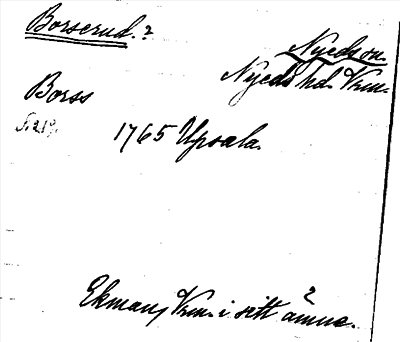 Borserud.?
Nyeds sn.
Nyeds hd. Vrm.
Borss
S. 219.
1765 Upsala.
Ekman, Vrm. i sitt ämne.
?